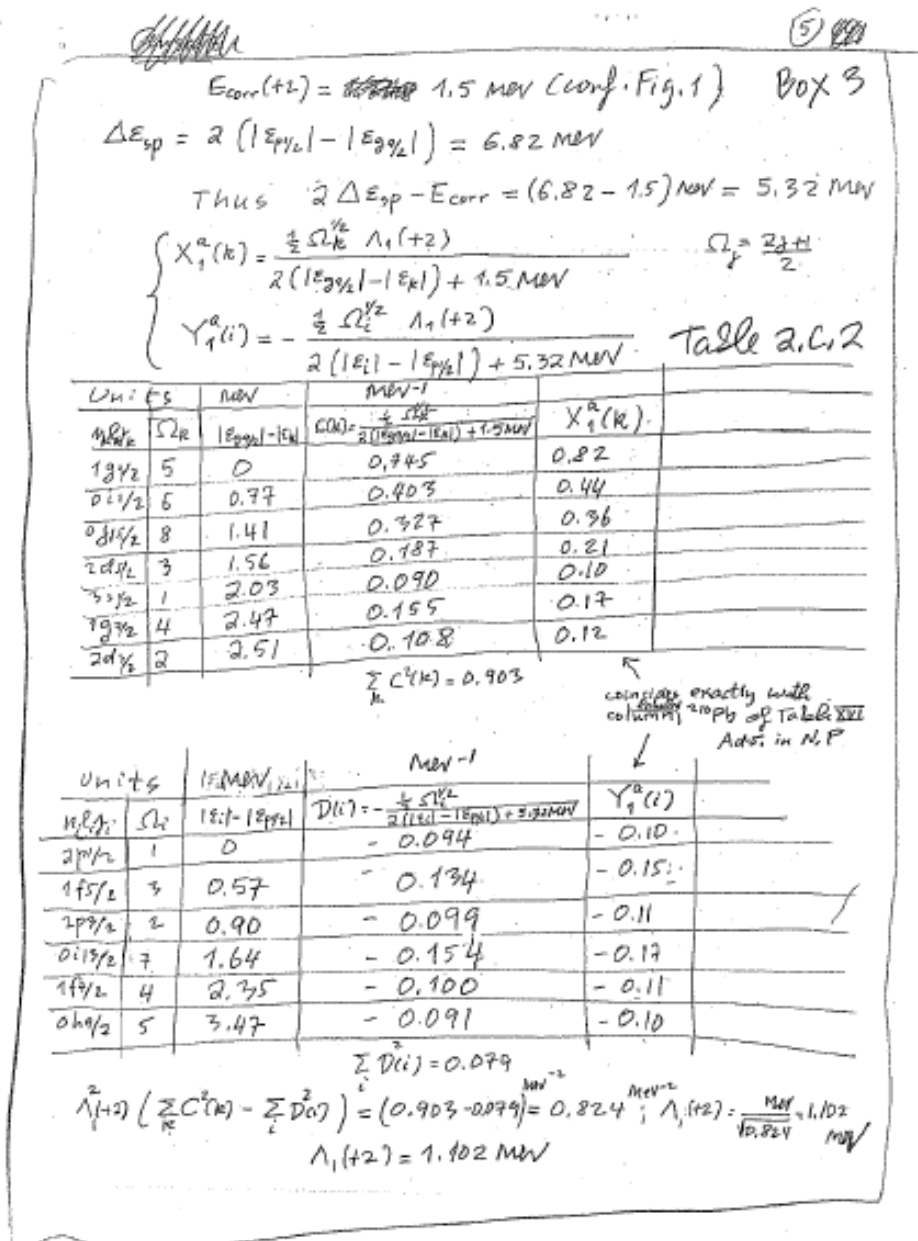 5
E_corr(+2) = 1.5 MeV (conf. Fig. 1) Box 3
Δε_sp = 2 (|ε_p1/2| - |ε_g9/2|) = 6.82 MeV
Thus 2 Δε_sp - E_corr = (6.82 - 1.5) MeV = 5.32 MeV
X_1^a(k) = ½ Ω_k^1/2 Λ_1(+2) / 2(|ε_g9/2| - |ε_k|) + 1.5 MeV Ω_j = 2j+1 / 2
Y_1^a(i) = - ½ Ω_i^1/2 Λ_1(+2) / 2(|ε_i| - |ε_p1/2|) + 5.32 MeV Table 2.C.2
Units MeV MeV-1
Ω_k |ε_g9/2| - |ε_k| C(k) = ½ Ω_k^1/2 / 2(|ε_g9/2| - |ε_k|) + 1.5 MeV X_1^a(k)
1g9/2 5 0 0.745 0.82
0i11/2 6 0.77 0.403 0.44
0j15/2 8 1.41 0.327 0.36
2d5/2 3 1.56 0.187 0.21
3s1/2 1 2.03 0.090 0.10
1g7/2 4 2.47 0.155 0.17
2d3/2 2 2.51 0.108 0.12
Σ_k C²(k) = 0.903
coincides exactly with
column 210Pb of Table XVI
Adv. in N.P
Units MeV MeV-1
Ω_i |ε_i| - |ε_p1/2| D(i) = - ½ Ω_i^1/2 / 2(|ε_i| - |ε_p1/2|) + 5.32 MeV Y_1^a(i)
2p1/2 1 0 - 0.094 - 0.10
1f5/2 3 0.57 - 0.134 - 0.15
2p3/2 2 0.90 - 0.099 - 0.11
0i13/2 7 1.64 - 0.154 - 0.17
1f7/2 4 2.35 - 0.100 - 0.11
0h9/2 5 3.47 - 0.091 - 0.10
Σ_i D²(i) = 0.079
Λ_1²(+2) (Σ_k C²(k) - Σ_i D²(i)) = (0.903 - 0.079) MeV-2 = 0.824 MeV-2 ; Λ_1(+2) = MeV / √0.824 = 1.102 MeV
Λ_1(+2) = 1.102 MeV